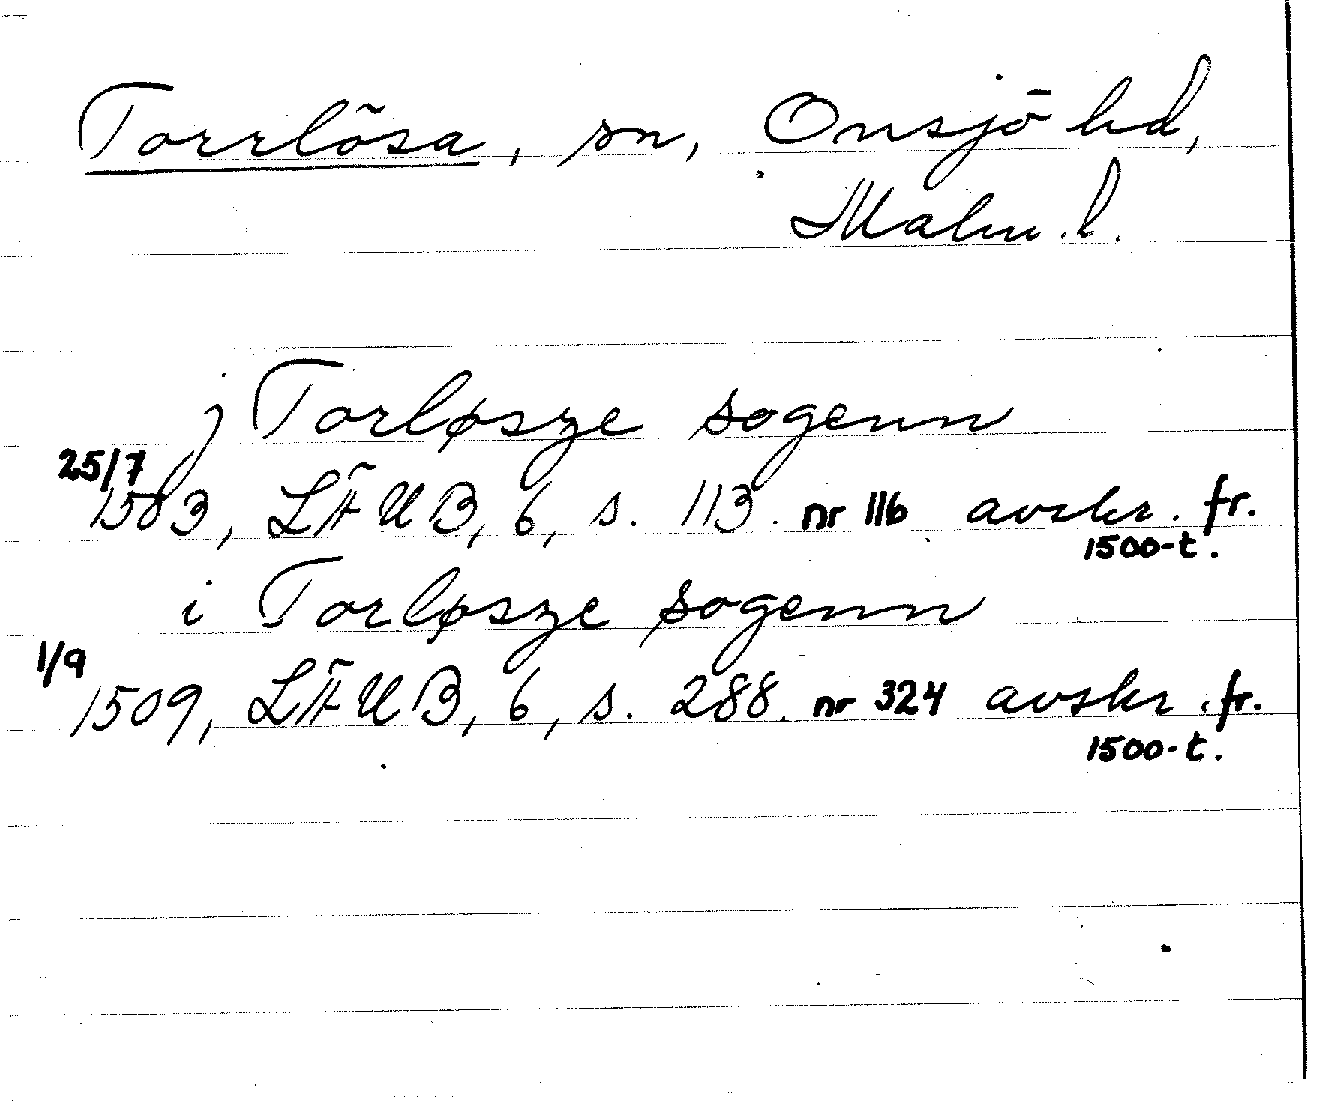 Torrlösa, sn, Onsjö hd,
Malm. l.
j Torløsze sogenn
25/7
1503, LÄUB, 6, s. 113. nr 116 avskr. fr.
1500-t.
i Torløsze sogenn
1/9
1509, LÄUB, 6, s. 288. nr 324 avskr. fr.
1500-t.